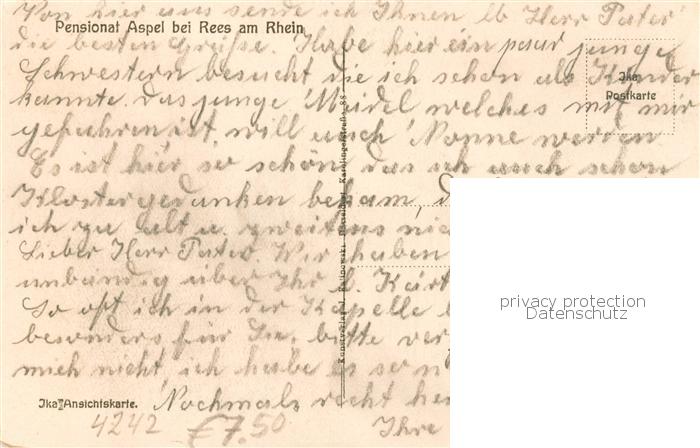 Von hier aus sende ich Ihnen lb Herr Pater
Pensionat Aspel bei Rees am Rhein
die besten Grüße. Habe hier ein paar junge
Schwestern besucht die ich schon als Kinder
Ika
Postkarte
kannte das junge Mädel welches mit mir
gefahren ist will auch Nonne werden
Es ist hier so schön das ich auch schon
Klostergedanken bekam, d
ich zu alt u. zweitens nic
Lieber Herr Pater. Wir haben
unbändig über Ihr lb. Kärt
So oft ich in der Kapelle b
besonders für Sie, bitte ver
mich nicht, ich habe es so n
Nochmals recht her
Ihre
Ika Ansichtskarte.
4242 €7.50
privacy protection
Datenschutz